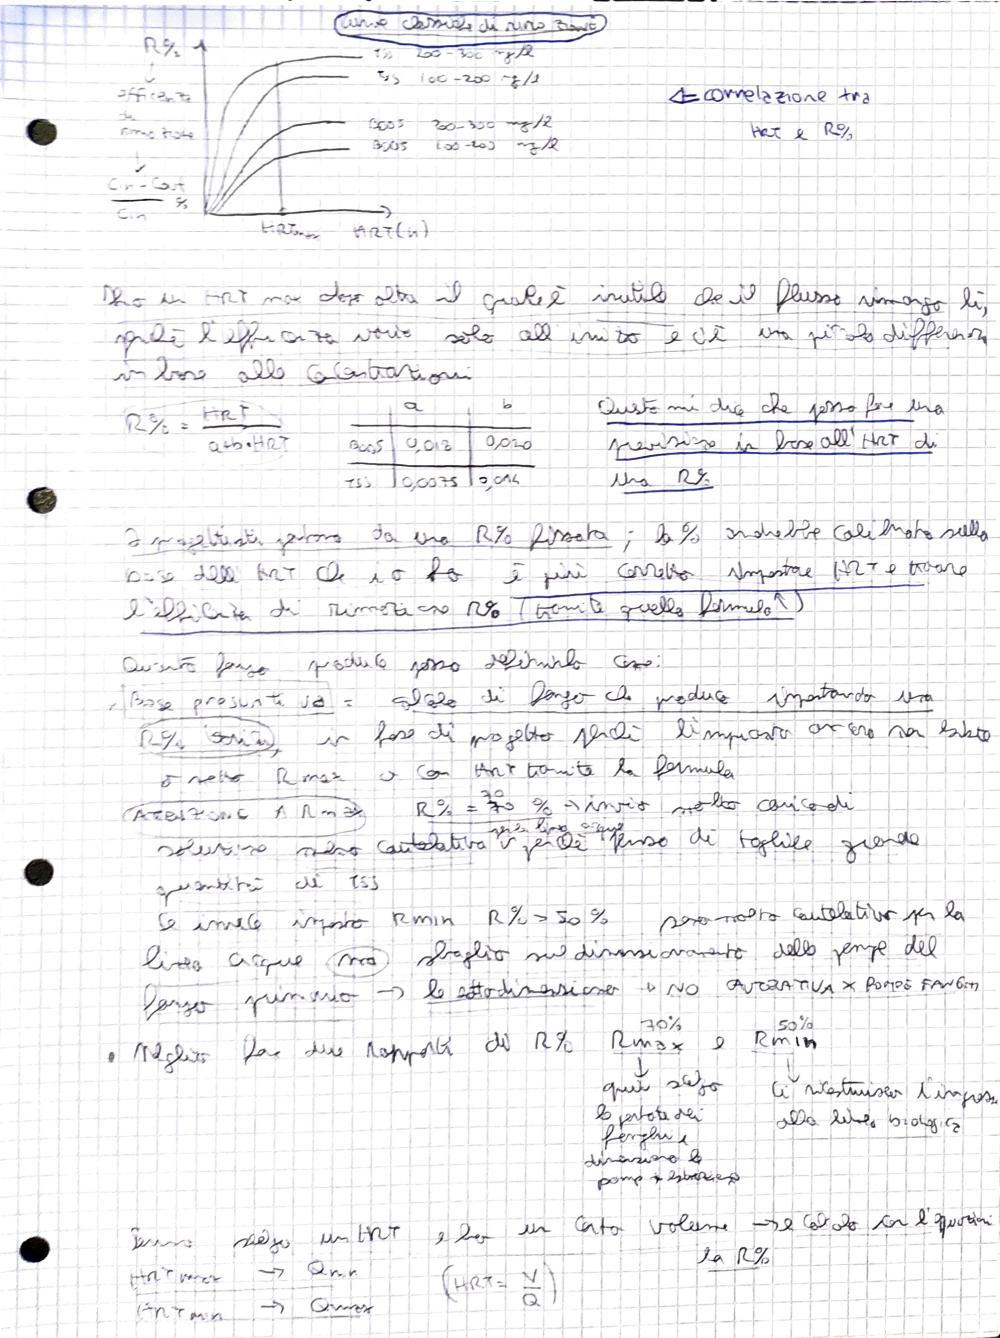 Curve classiche di rimozione
R%
TSS 200-300 mg/l
TSS 100-200 mg/l
efficienza
di
rimozione
BOD5 200-300 mg/l
BOD5 100-200 mg/l
Cin-Cout
Cin %
HRTmax HRT(h)
⇐ correlazione tra
HRT e R%
Ho un HRT max dopo oltre il quale è inutile che il flusso rimanga lì,
perché l'efficienza varia solo all'inizio e c'è una piccola differenza
in base alle concentrazioni
R% = HRT
a+b•HRT
a b
BOD5 0,018 0,020
TSS 0,0075 0,014
Questo mi dice che posso fare una
previsione in base all'HRT di
una R%
I progettisti partono da una R% fissata; la % andrebbe calibrata sulla
base dell'HRT che io ho è più corretto impostare HRT e trovare
l'efficienza di rimozione R% (tramite quella formula ↑)
Quanto fango produce posso definirlo così:
Base presunta = calcolo di fango che produce impostando una
R% in fase di progetto perché l'impianto ancora non esiste
o metto Rmax o con HRT tramite la formula
ATTENZIONE A Rmax R% = 70 % → invio molto carico di
soluzione meno cautelativa per linea acque perché penso di togliere grande
quantità di TSS
Se invece imposto Rmin R% > 50 % sono molto cautelativo per la
linea acque ma sbaglio sul dimensionamento delle pompe del
fango primario → le sottodimensiono NO CAUTELATIVA X POMPE FANGHI
• Meglio fare due rapporti di R% Rmax 70% e Rmin 50%
qui scelgo
le portate dei
fanghi e
dimensiono le
pompe estrazione
Ci ricostruisco l'ingresso
alla linea biologica
scelgo un HRT e ho un certo volume → e calcolo con l'equazione
la R%
HRTmax → Qmin
HRTmin → Qmax
(HRT = V
Q)